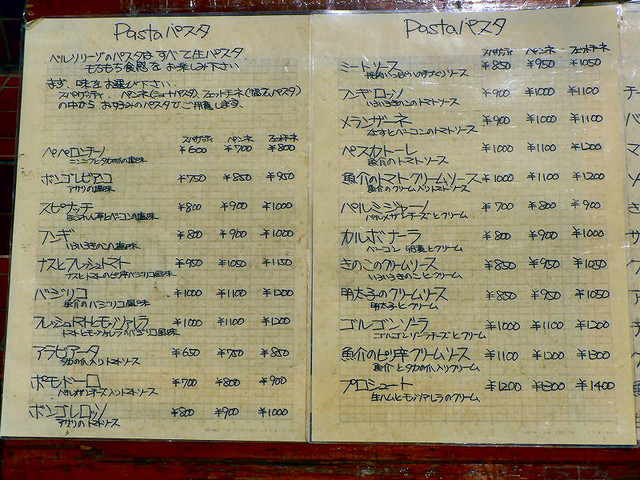 Pastaパスタ
ペルソリーゾのパスタは すべて生パスタ
もちもち食感を お楽しみ下さい
まず、味をお選び下さい。
スパゲッティ、ペンネ(ショートパスタ)、フェットチーネ(幅広パスタ)
の中から お好みのパスタでご用意します。
スパゲッティ ペンネ フェットチーネ
ペペロンチーノ ¥600 ¥700 ¥800
ニンニクとタカの爪の塩味
ボンゴレビアンコ ¥750 ¥850 ¥950
アサリの塩味
スピナッチ ¥800 ¥900 ¥1000
ほうれん草とベーコンの塩味
フンギ ¥800 ¥900 ¥1000
いろいろきのこの塩味
ナスとフレッシュトマト ¥950 ¥1050 ¥1150
ナスとトマトのピリ辛バジリコ風味
バジリコ ¥1000 ¥1100 ¥1200
魚介のバジリコ風味
フレッシュトマトとモッツァレラ ¥1000 ¥1100 ¥1200
トマトとモッツァレラのバジリコ風味
アラビアータ ¥650 ¥750 ¥850
タカの爪入りトマトソース
ポモドーロ ¥700 ¥800 ¥900
パルメザンチーズ入りトマトソース
ボンゴレロッソ ¥800 ¥900 ¥1000
アサリのトマトソース
Pastaパスタ
スパゲッティ ペンネ フェットチーネ
ミートソース ¥850 ¥950 ¥1050
挽肉いっぱいの手づくりソース
フンギロッソ ¥900 ¥1000 ¥1100
いろいろきのこのトマトソース
メランザーネ ¥900 ¥1000 ¥1100
なすとベーコンのトマトソース
ペスカトーレ ¥1000 ¥1100 ¥1200
魚介のトマトソース
魚介のトマトクリームソース ¥1000 ¥1100 ¥1200
魚介のクリーム入りトマトソース
パルミジャーノ ¥700 ¥800 ¥900
パルメザンチーズとクリーム
カルボナーラ ¥800 ¥900 ¥1000
ベーコン 卵黄とクリーム
きのこのクリームソース ¥850 ¥950 ¥1050
いろいろきのことクリーム
明太子のクリームソース ¥850 ¥950 ¥1050
明太子とクリーム
ゴルゴンゾーラ ¥1000 ¥1100 ¥1200
ゴルゴンゾーラチーズとクリーム
魚介のピリ辛クリームソース ¥1100 ¥1200 ¥1300
魚介とタカの爪入りクリーム
プロシュート ¥1200 ¥1300 ¥1400
生ハムとモッツァレラのクリーム